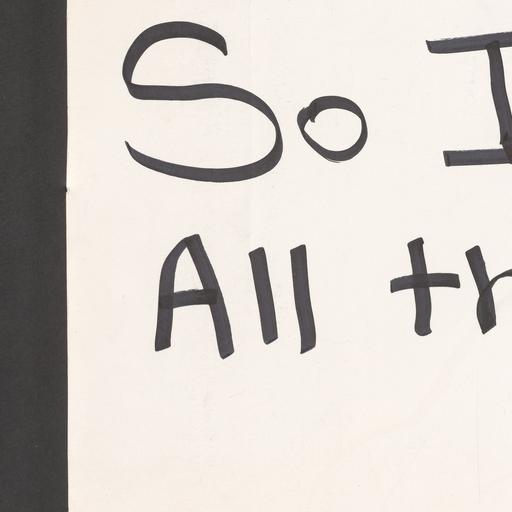 So I
All th